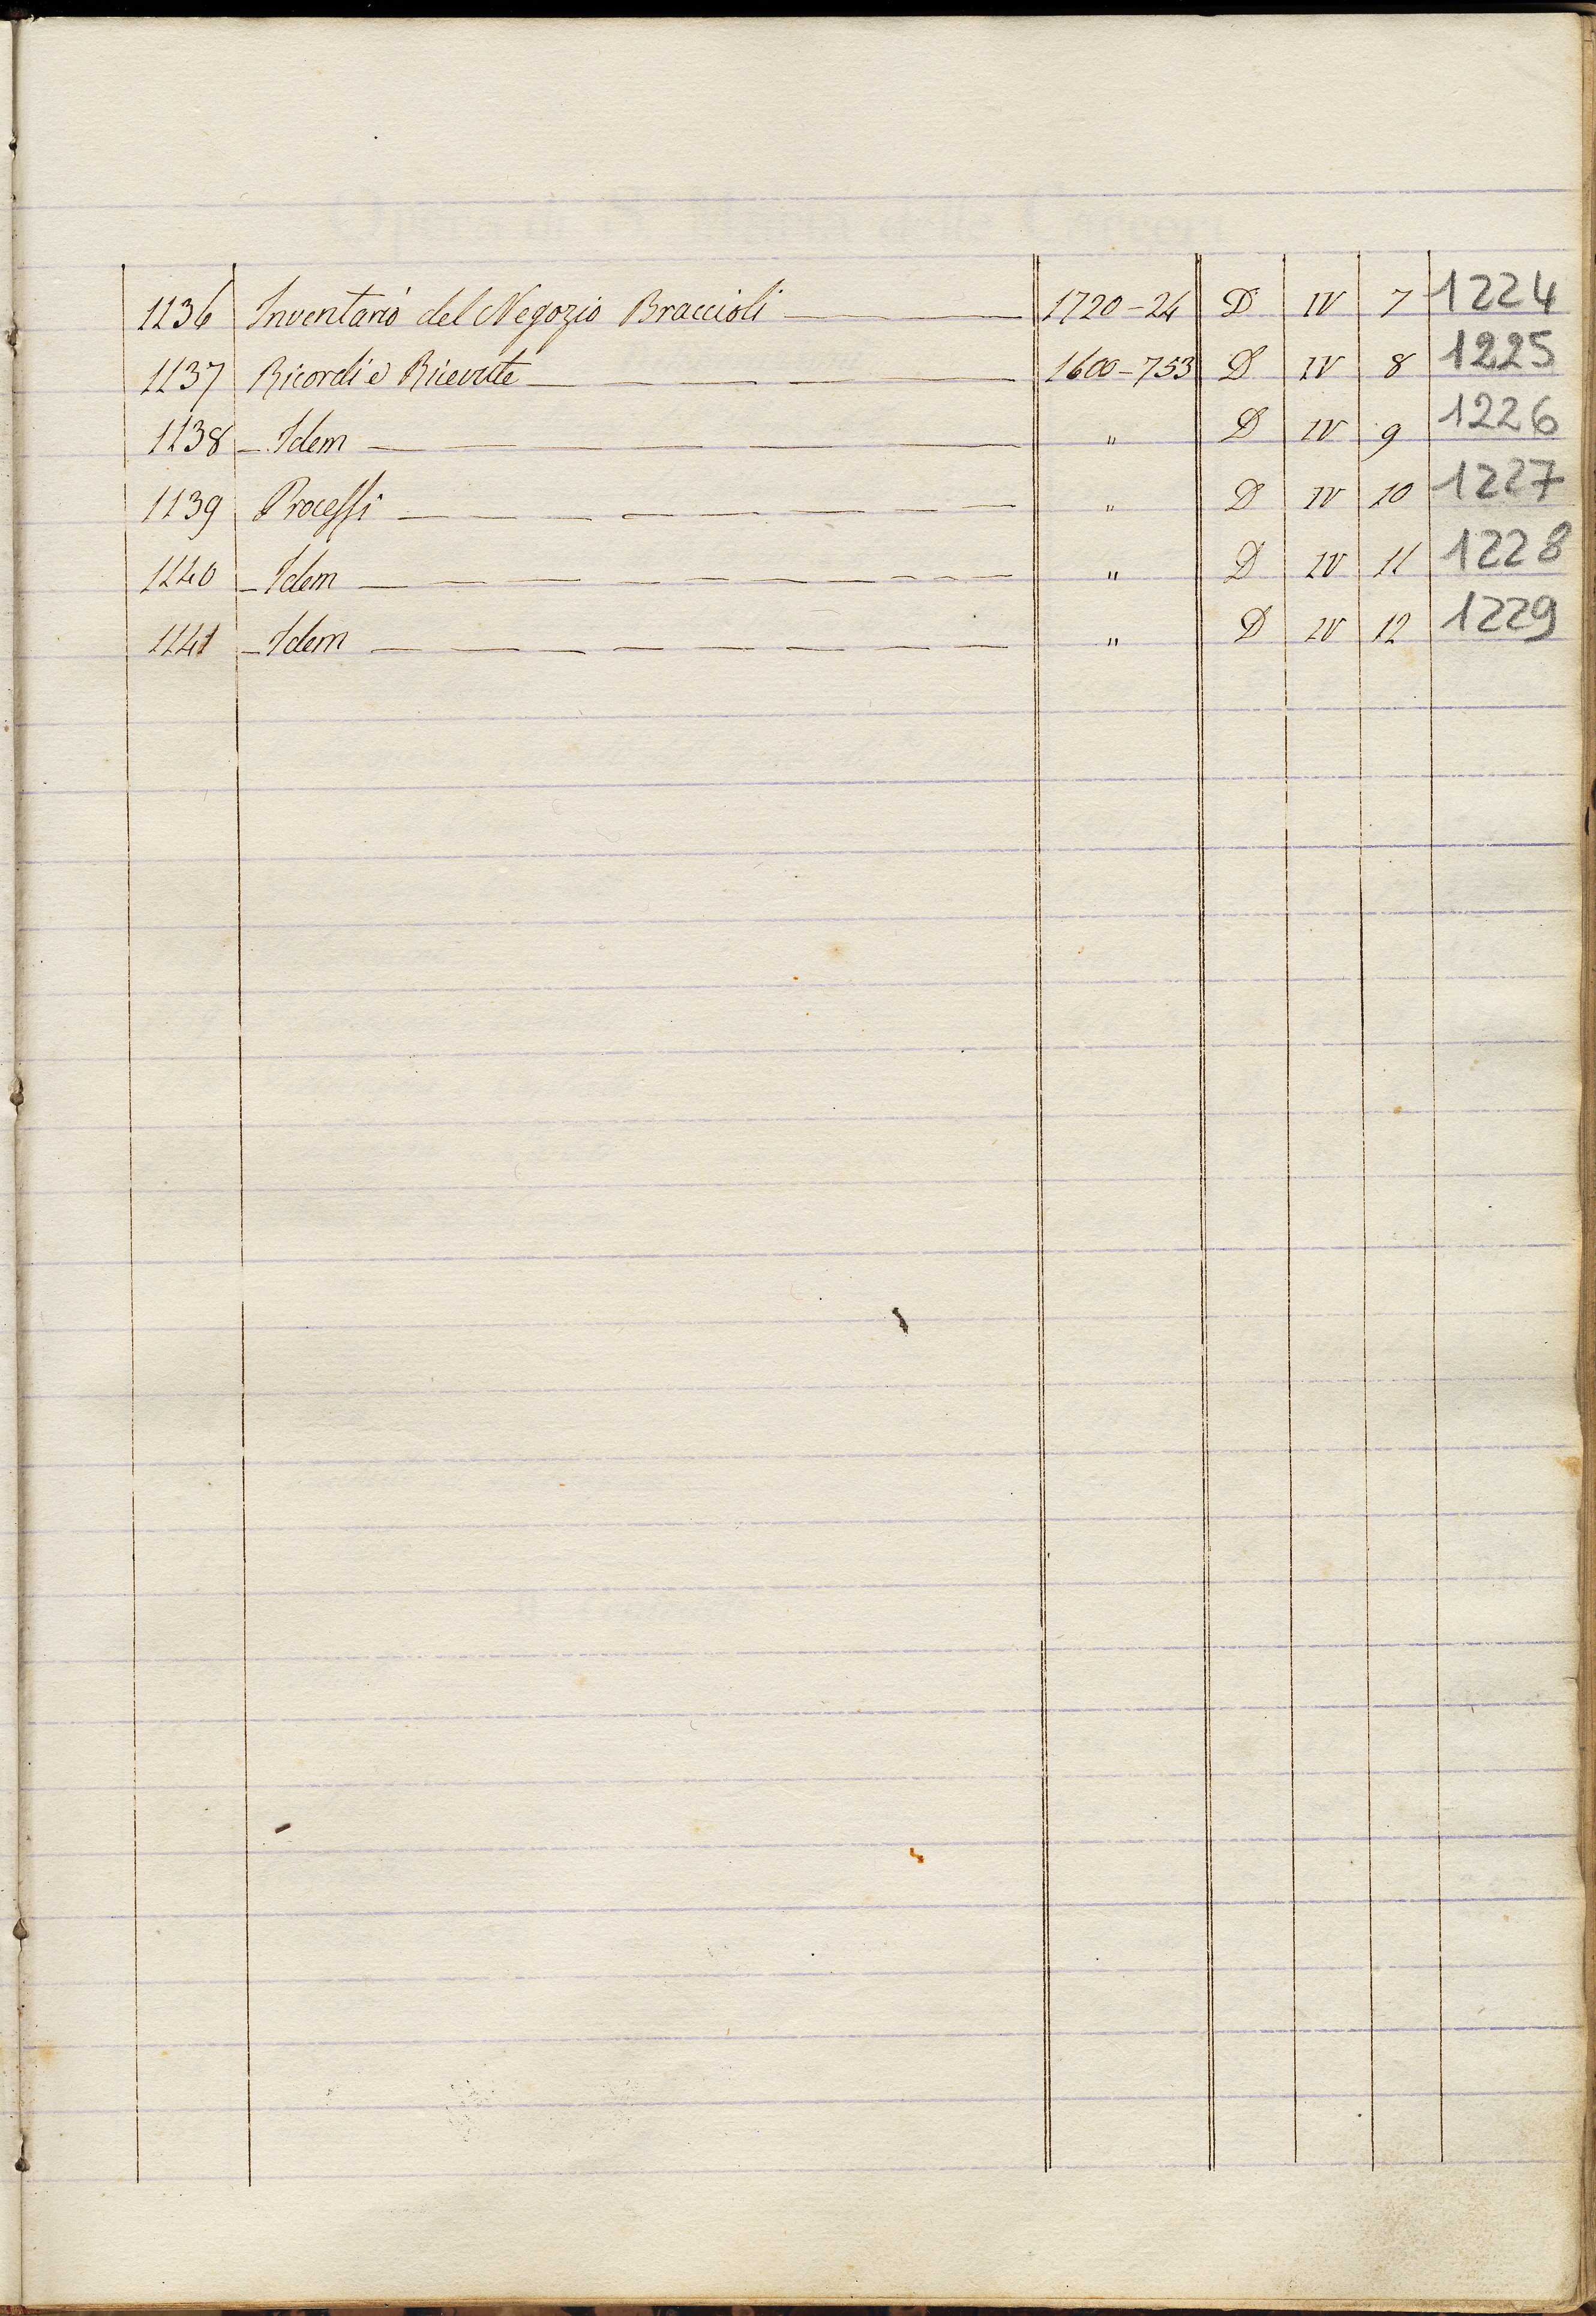 1136 Inventario del Negozio Braccioli 1720-24 D IV 7 1224
1137 Ricordi e Ricevute 1600-753 D IV 8 1225
1138 - Idem " D IV 9 1226
1139 Processi " D IV 10 1227
1140 - Idem " D IV 11 1228
1141 - Idem " D IV 12 1229